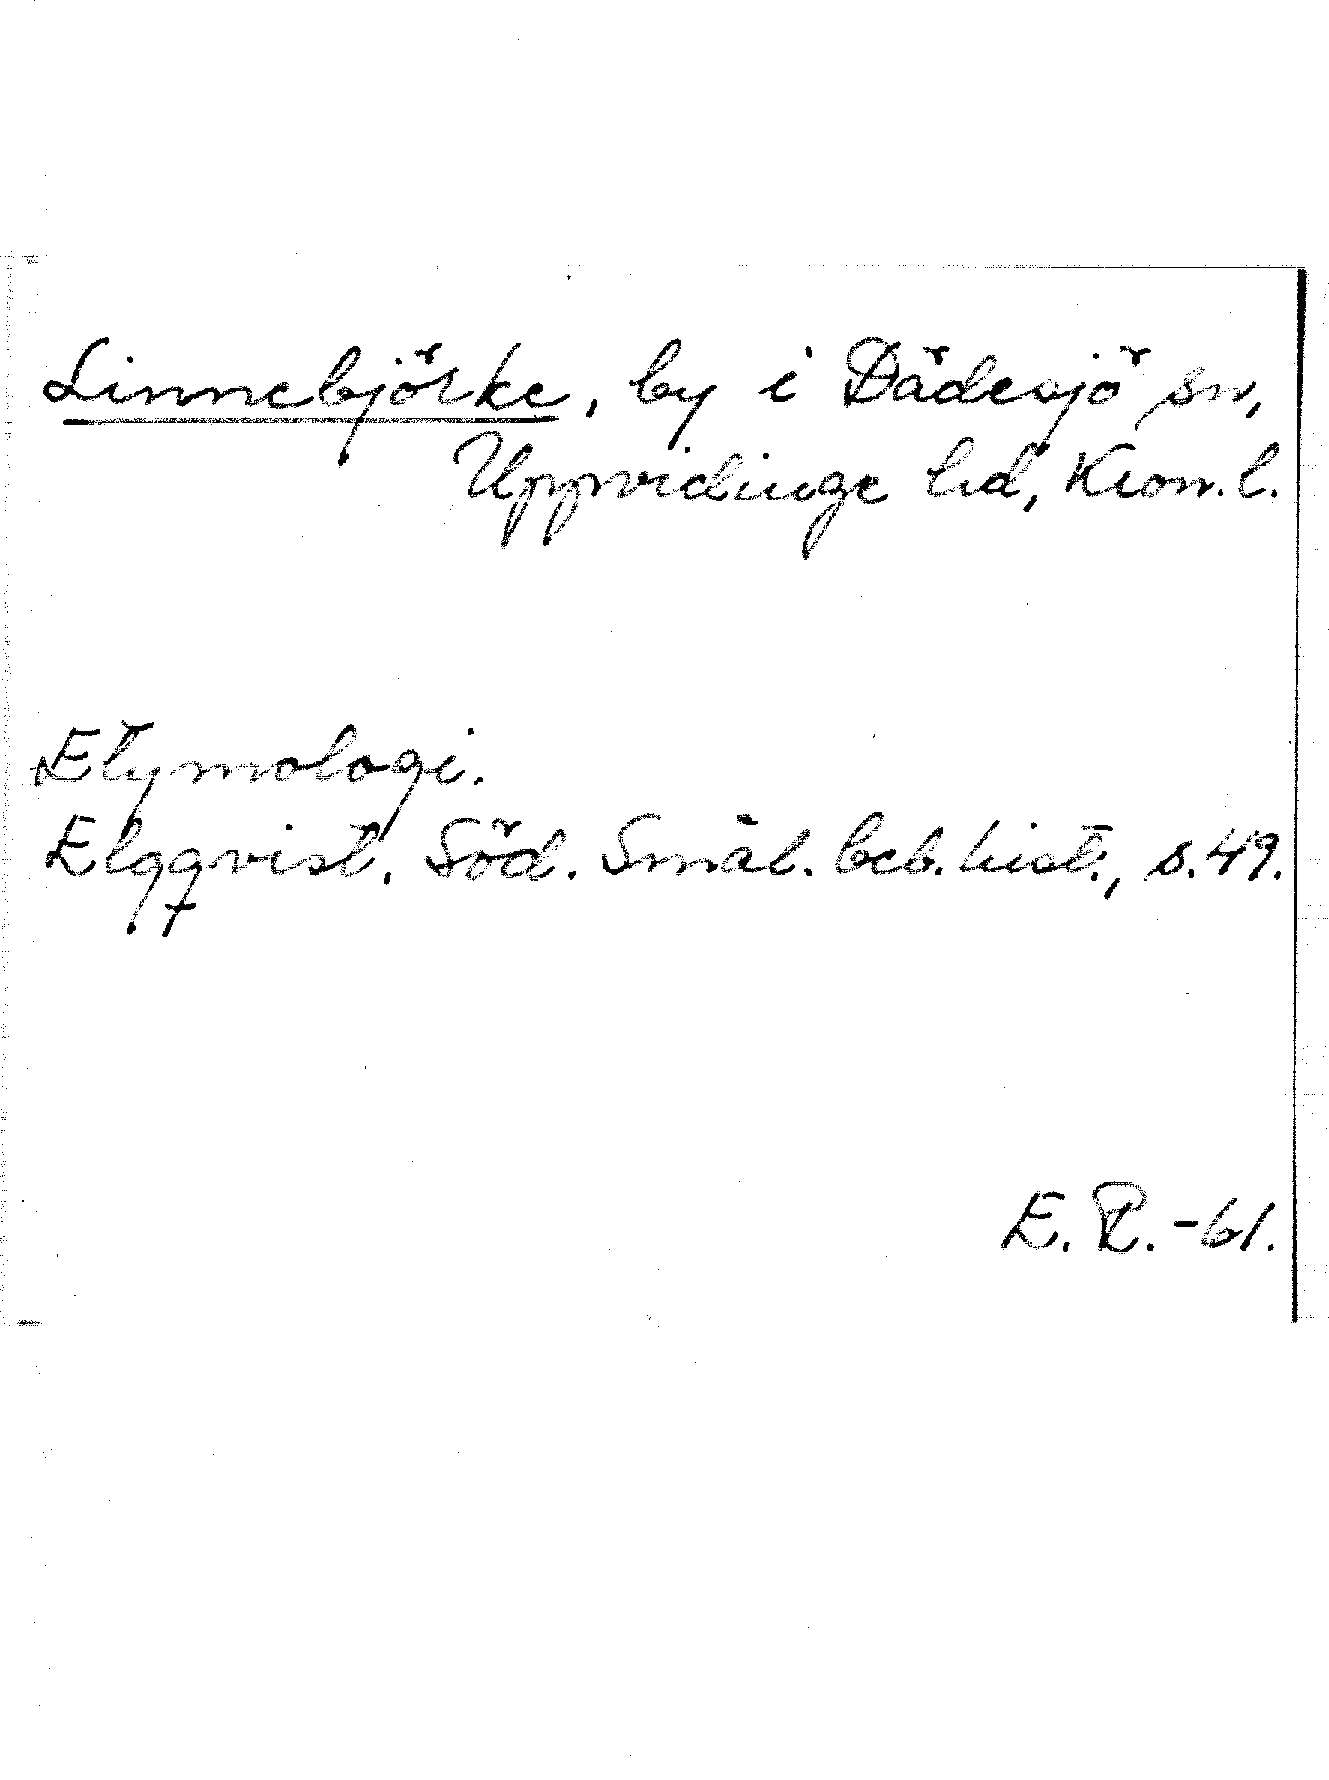 Linnebjörke, by i Dädesjö sn,
Uppvidinge hd, Kron.l.
Etymologi.
Elgqvist, Söd. Smål. beb. hist., s.49.
E. P. -61.